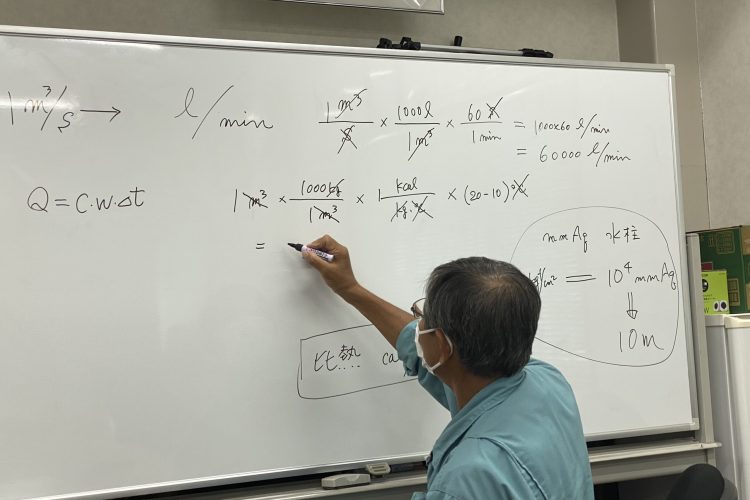 1 m³/s → l/min
1 m³/s × 1000l/1m³ × 60s/1min = 1000×60 l/min
= 60000 l/min
Q = C.W.Δt
1 m³ × 1000kg/1m³ × 1 kcal/kg·℃ × (20-10)℃
=
mmAq 水柱
/cm² = 10⁴ mmAq
⇓
10m
比熱 ca